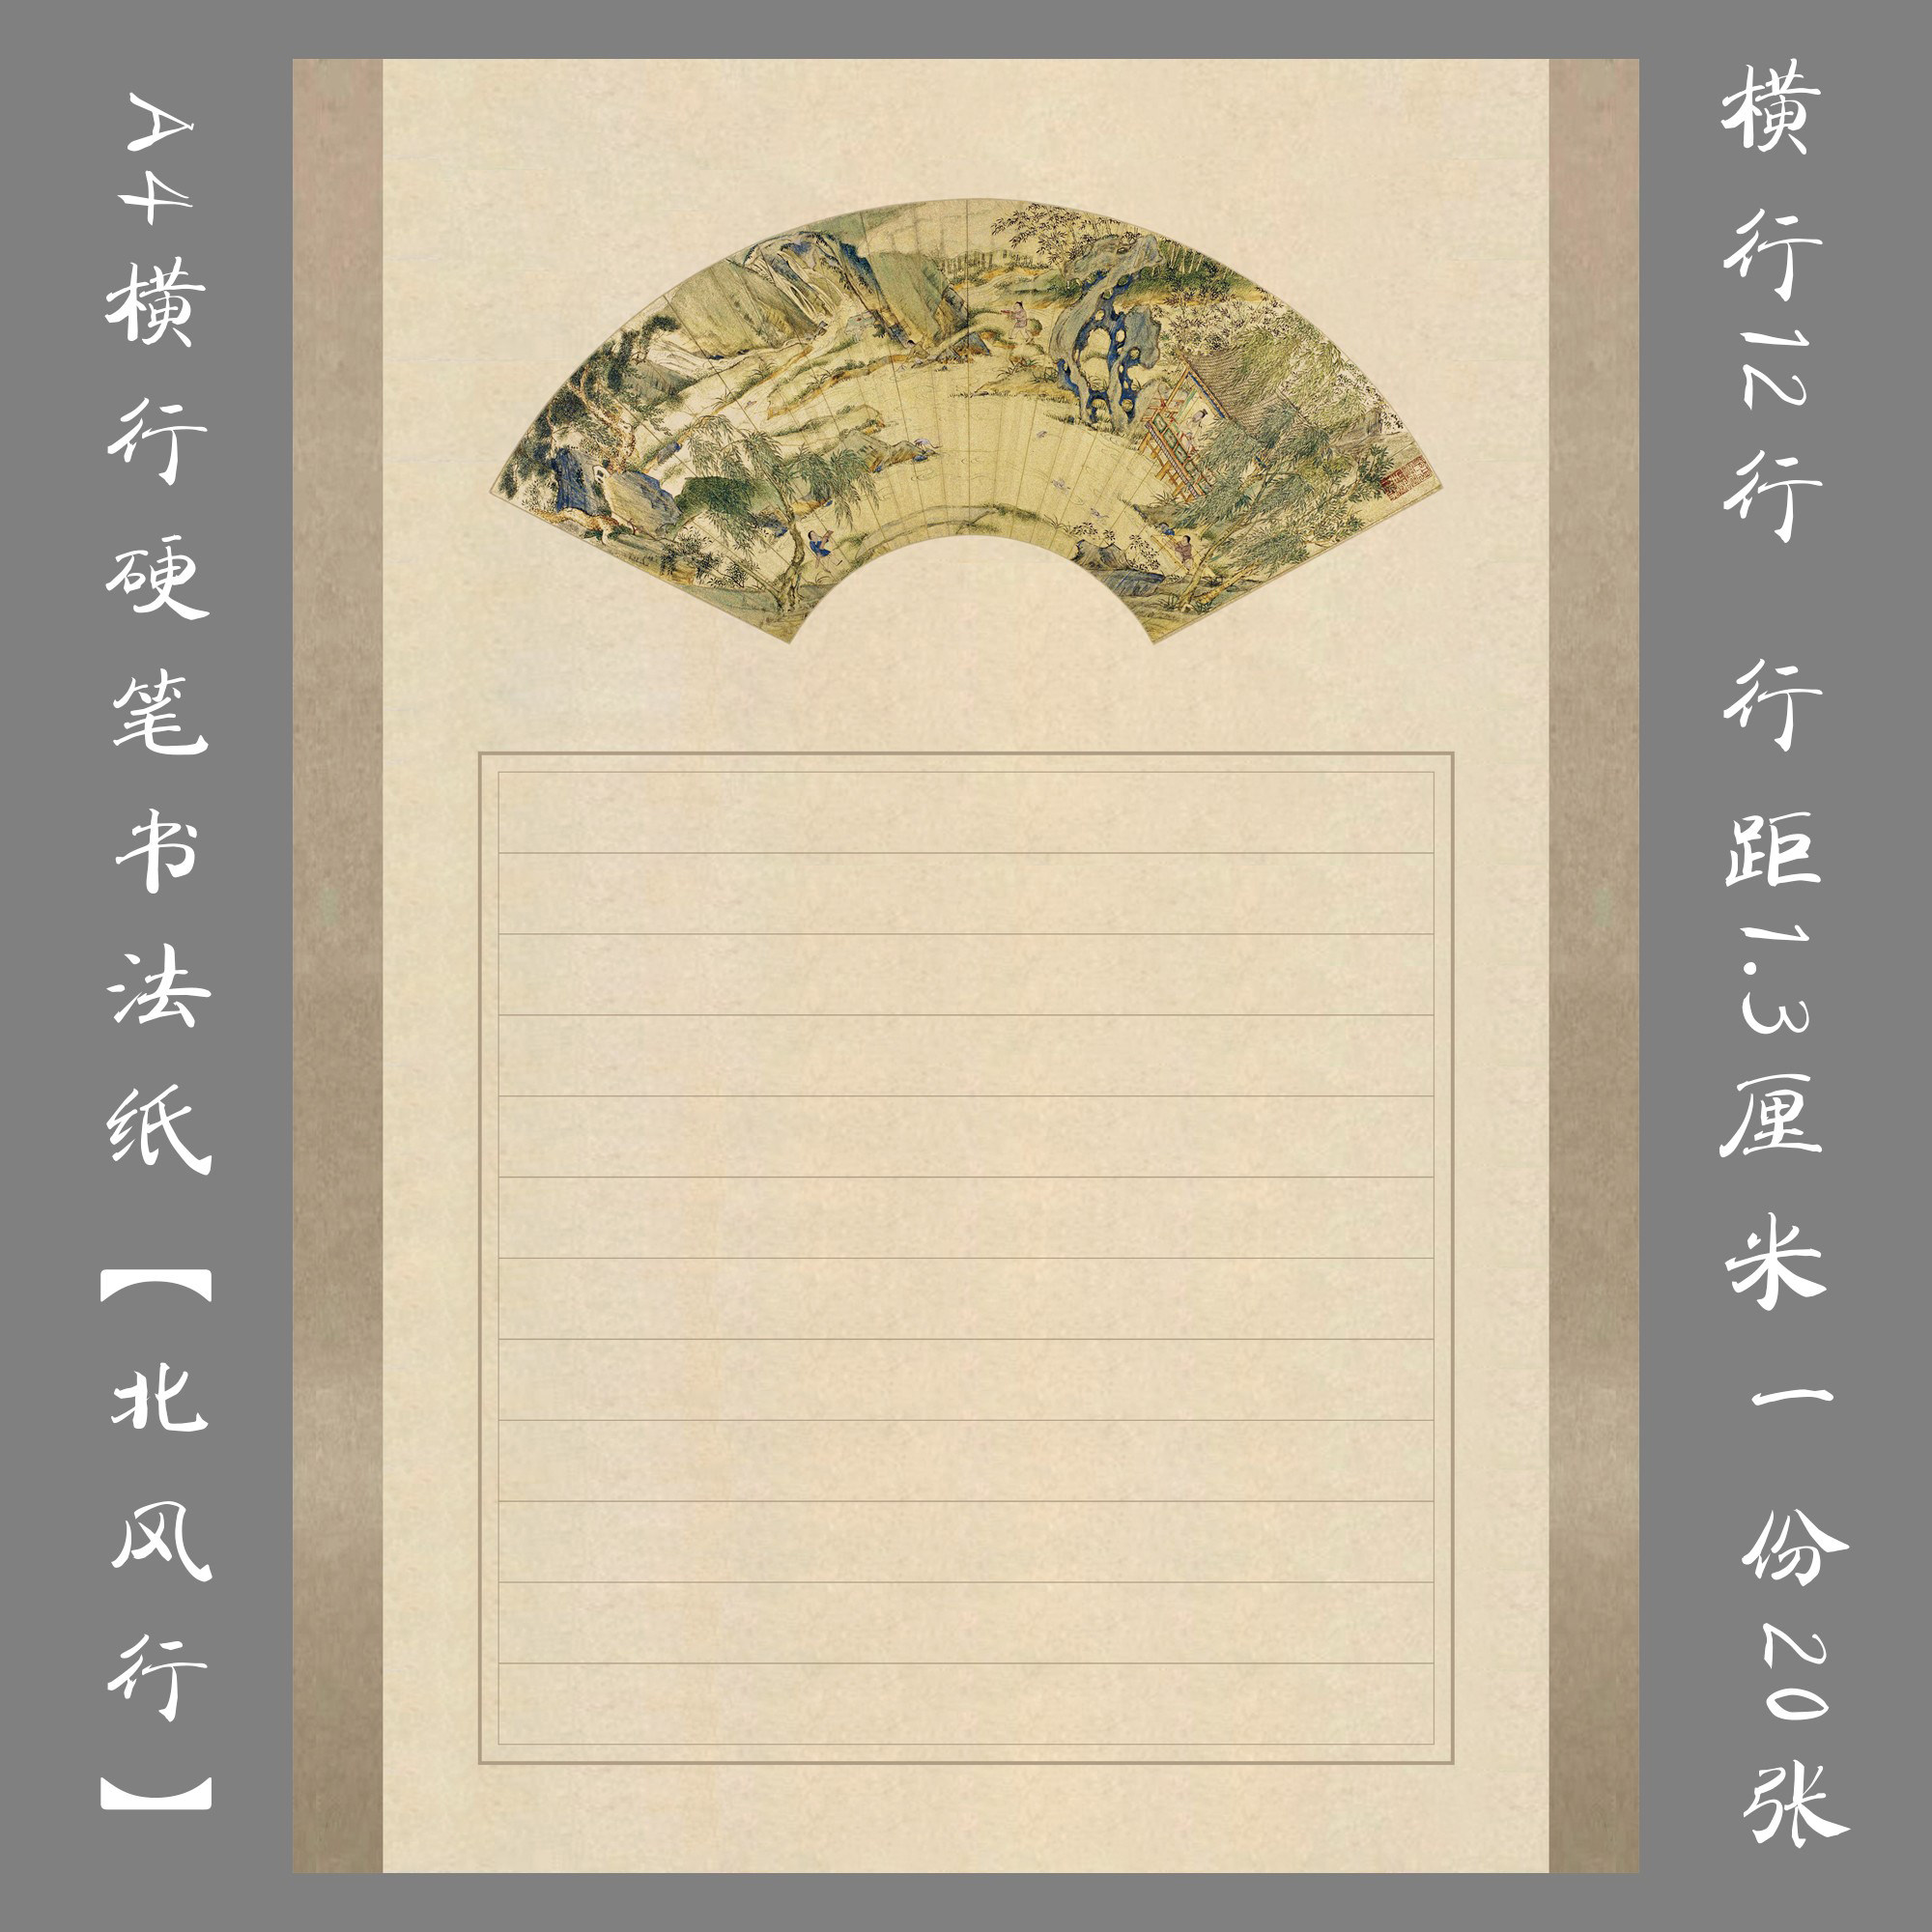 横行12行 行距1.3厘米一份20张
A4横行硬笔书法纸【北风行】